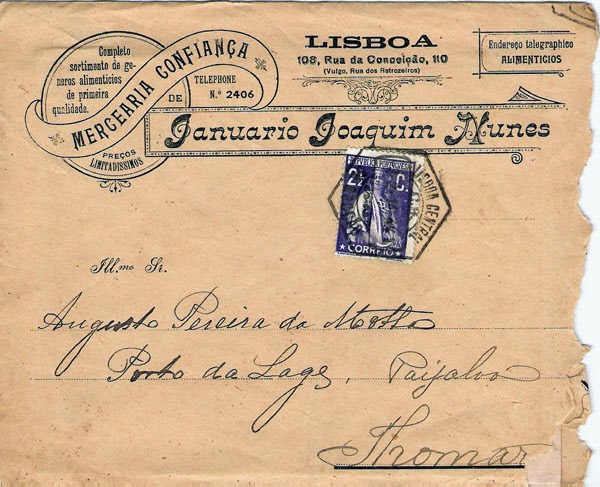 Completo
sortimento de ge-
neros alimenticios
de primeira
qualidade.
MERCEARIA CONFIANÇA
PREÇOS
LIMITADISSIMOS
TELEPHONE
N.º 2406
DE
LISBOA
108, Rua da Conceição, 110
(Vulgo, Rua dos Retrozeiros)
Endereço telegraphico
ALIMENTICIOS
Januario Joaquim Nunes
REPUBLICA PORTUGUESA
2½ C.
CORREIO
LISBOA CENTRAL
Ill.mo Sr.
Augusto Pereira da Motta
Porto da Lage, Paijalvo
Thomar